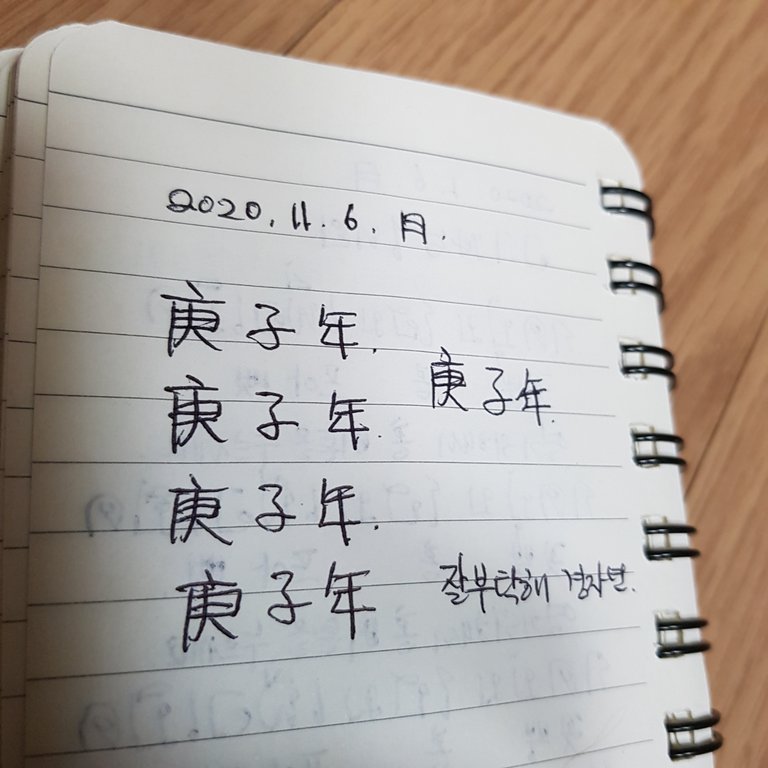 2020. 11. 6. 月.
庚子年.
庚子年.
庚子年.
庚子年.
庚子年
잘부탁해 경자년.